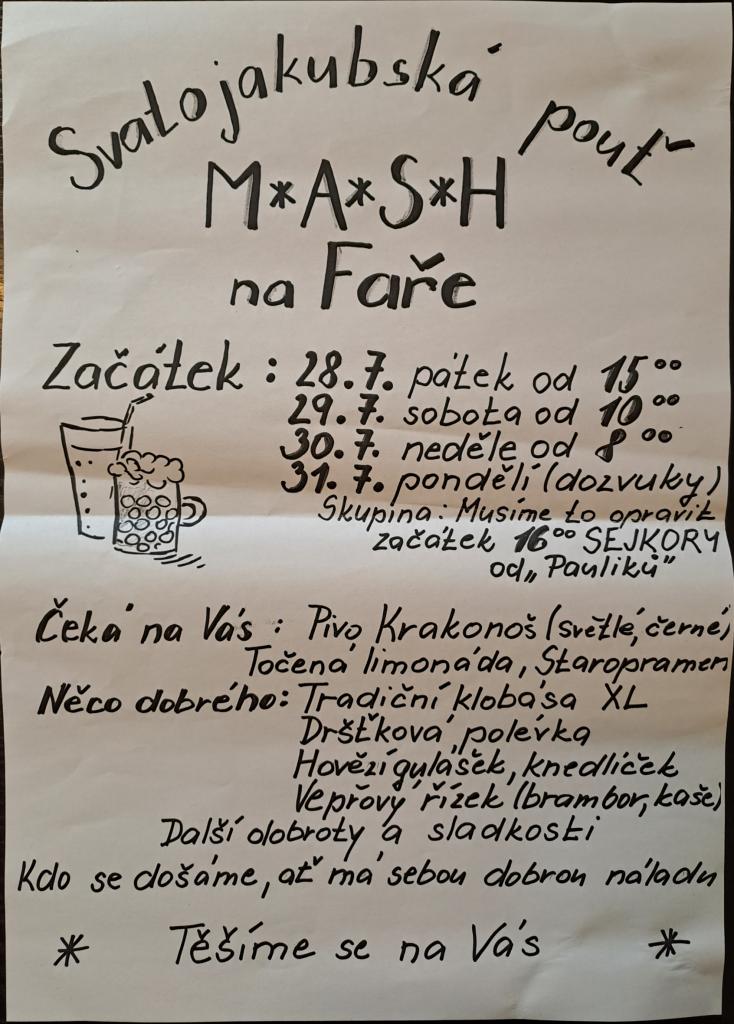 Svatojakubská pouť
M*A*S*H
na Faře
Začátek : 28.7. pátek od 15⁰⁰
29.7. sobota od 10⁰⁰
30.7. neděle od 8⁰⁰
31.7. pondělí (dozvuky)
Skupina: Musíme to opravit
začátek 16⁰⁰ SEJKORY
od „Paulików"
Čeká na Vás : Pivo Krakonoš (světlé, černé)
Točená limonáda, Staropramen
Něco dobrého: Tradiční klobása XL
Dršťková polévka
Hovězí gulášek, knedlíček
Vepřový řízek (brambor, kaše)
Další dobroty a sladkosti
Kdo se došáme, ať má sebou dobrou náladu
* Těšíme se na Vás *